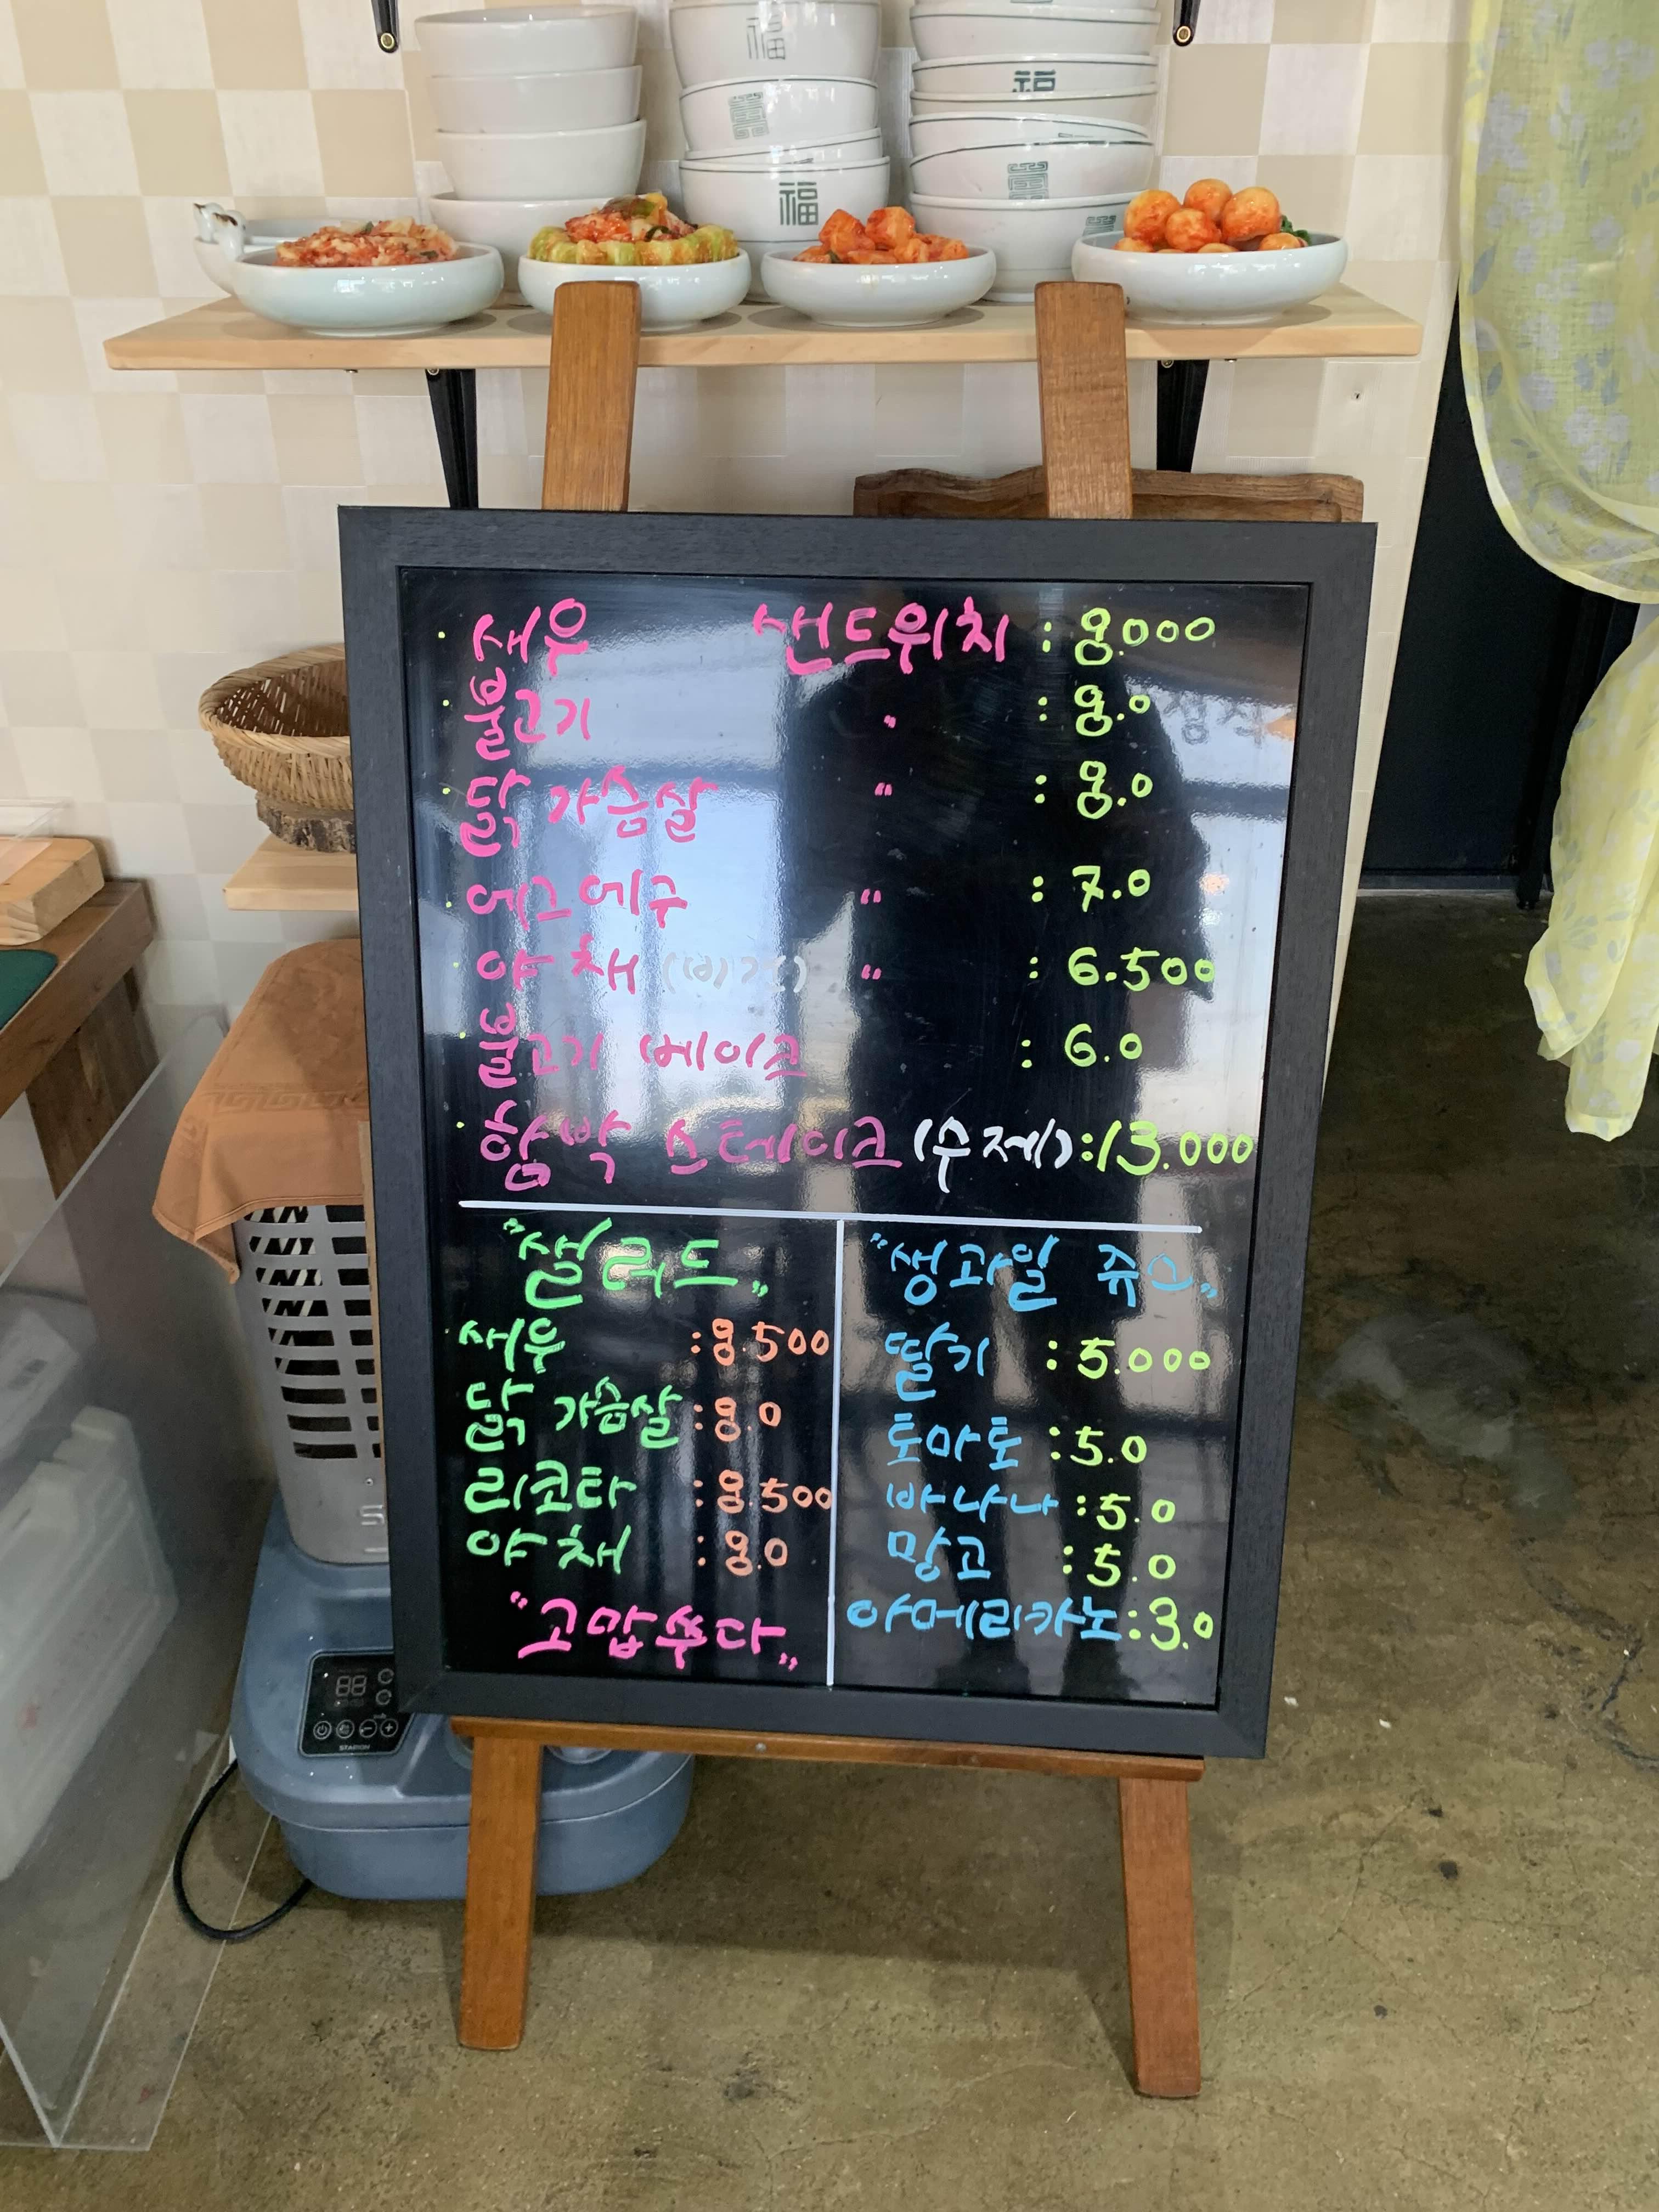 福
福
福
· 새우 샌드위치 : 8.000
· 불고기 〃 : 8.0
· 닭 가슴살 〃 : 8.0
· 에그에구 〃 : 7.0
· 야채 (비건) 〃 : 6.500
· 불고기 베이크 : 6.0
· 함박 스테이크 (수제) : 13.000
"샐러드"
새우 : 8.500
닭 가슴살 : 8.0
리코타 : 8.500
야채 : 8.0
"고맙쑤다"
"생과일 쥬스"
딸기 : 5.000
토마토 : 5.0
바나나 : 5.0
망고 : 5.0
아메리카노 : 3.0
88